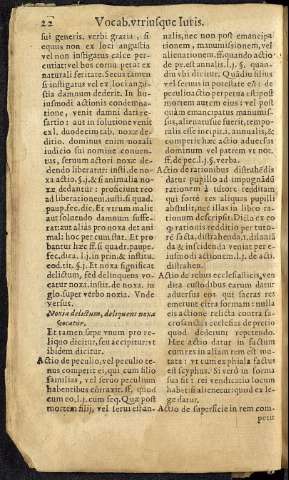 22 Vocab. vtriusque Iuris.
sui generis. verbi gratia, si
equus non ex loci angustia
vel non instigatus calce per
cutiat: vel bos cornu petat ex
naturali feritate. Secus tamen
si instigatus vel ex loci angu-
stia damnum dederit. In hu-
iusmodi actionis condemna-
tione, venit damni dati re-
sartio: aut in solutione venit
ex l. duodecim tab. noxæ de-
ditio. dominus enim noxali
iudicio sui nomine conuen-
tus, seruum actori noxæ de-
dendo liberatur: insti. de no-
xa actio. §.j. & si animalia no-
xæ dedantur: proficiunt reo
ad liberationem. iusti. si quad.
paup. fec. dic. Et verum malit
aut soluendo damnum suffe-
rat: aut alias pro noxa det ani
mal: hoc per cum stat. Et pro-
bantur hæc ff. si quadr. paupe.
fec. dica. l.j. in prin. & institu.
eod. tit. §.j. Et noxa significat
delictum, sed delinquens vo-
catur noxa. instit. de noxa. in
gio. super verbo noxia. Vnde
versus.
Noxia delictum, delinquens noxa
vocatur.
Et tamen sæpe vnum pro re-
liquo dicitur, seu accipitur: vt
ibidem dicitur.
Actio de peculio, vel peculio te-
nus competit ei, qui cum filio
familias, vel seruo peculium
habentibus contraxit. ff. quod
cum eo. l.j. cum seq. Quæ post
mortem filij, vel serui est an-
nalis, nec non post emancipa
tionem, manumissionem, vel
alienationem, ff. quando actio
de pe. est annalis. l.j. §. quan-
diu vbi dicitur. Quādiu filius
vel seruus in potestate est: de
peculio actio est perpetua: post
mortem autem eius: vel post
quam emancipatus manumis-
sus, alienatusue fuerit, tempo-
ralis esse incipit. i. annalis, &
competit hæc actio aduersus
dominum vel patrem vt not.
ff. de pec. l.j. §. verba.
Actio de rationibus distrahēdis
datur pupillo ad impugnādā
rationem à tutore redditam,
qui forte res aliquas pupilli
abstulerit, nec illas in libro ra
tionum descripsit. Dicta ex eo
q̄ rationis redditio per tuto-
rē facta, distrahenda, t. diuidē
da & inscidēda venit per e-
iusmodi actionem, l.j. de acti.
distrahen.
Actio de rebus ecclesiasticis, ven
ditis custodibus earum datur
aduersus eos qui sacras res
emerunt citra formam: nulla
eis actione relicta contra sa-
crosanctas ecclesias de precio
quod. dederunt repetendo.
Hec actio datur in factum
cum res in aliam rem est mu-
tata: vt cum ex phiala factus
est scyphus. Si verò in forma
sua sit: rei vendicatio locum
habet: si alienetur: quod ex le-
ge datur.
Actio de superficie in rem com
petit